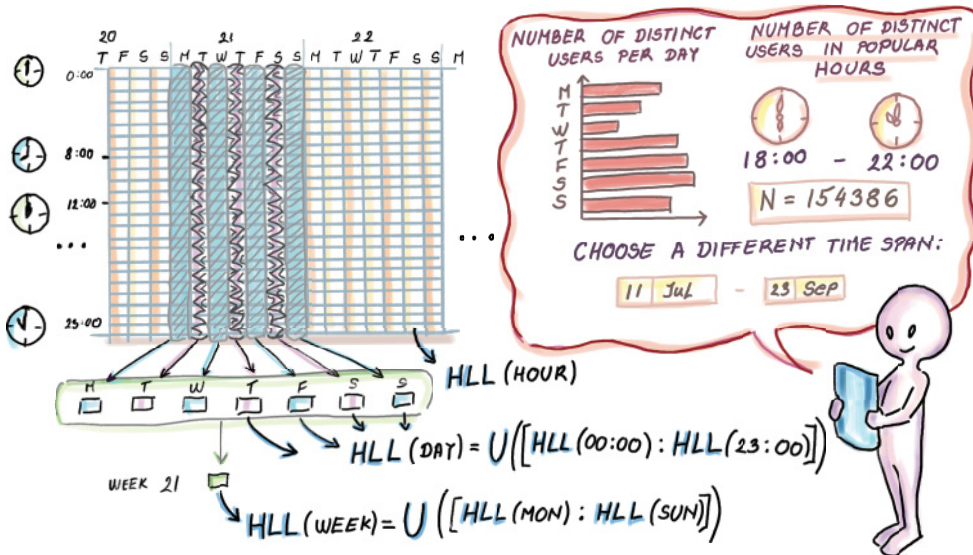 20 21 22
T F S S M T W T F S S M T W T F S S M
0:00
8:00
12:00
...
23:00
...
M T W T F S S
WEEK 21
HLL (HOUR)
HLL (DAY) = U([HLL(00:00) : HLL(23:00)])
HLL (WEEK) = U([HLL(MON) : HLL(SUN)])
NUMBER OF DISTINCT
USERS PER DAY
M
T
W
T
F
S
S
NUMBER OF DISTINCT
USERS IN POPULAR
HOURS
18:00 - 22:00
N = 154386
CHOOSE A DIFFERENT TIME SPAN:
11 Jul - 23 Sep